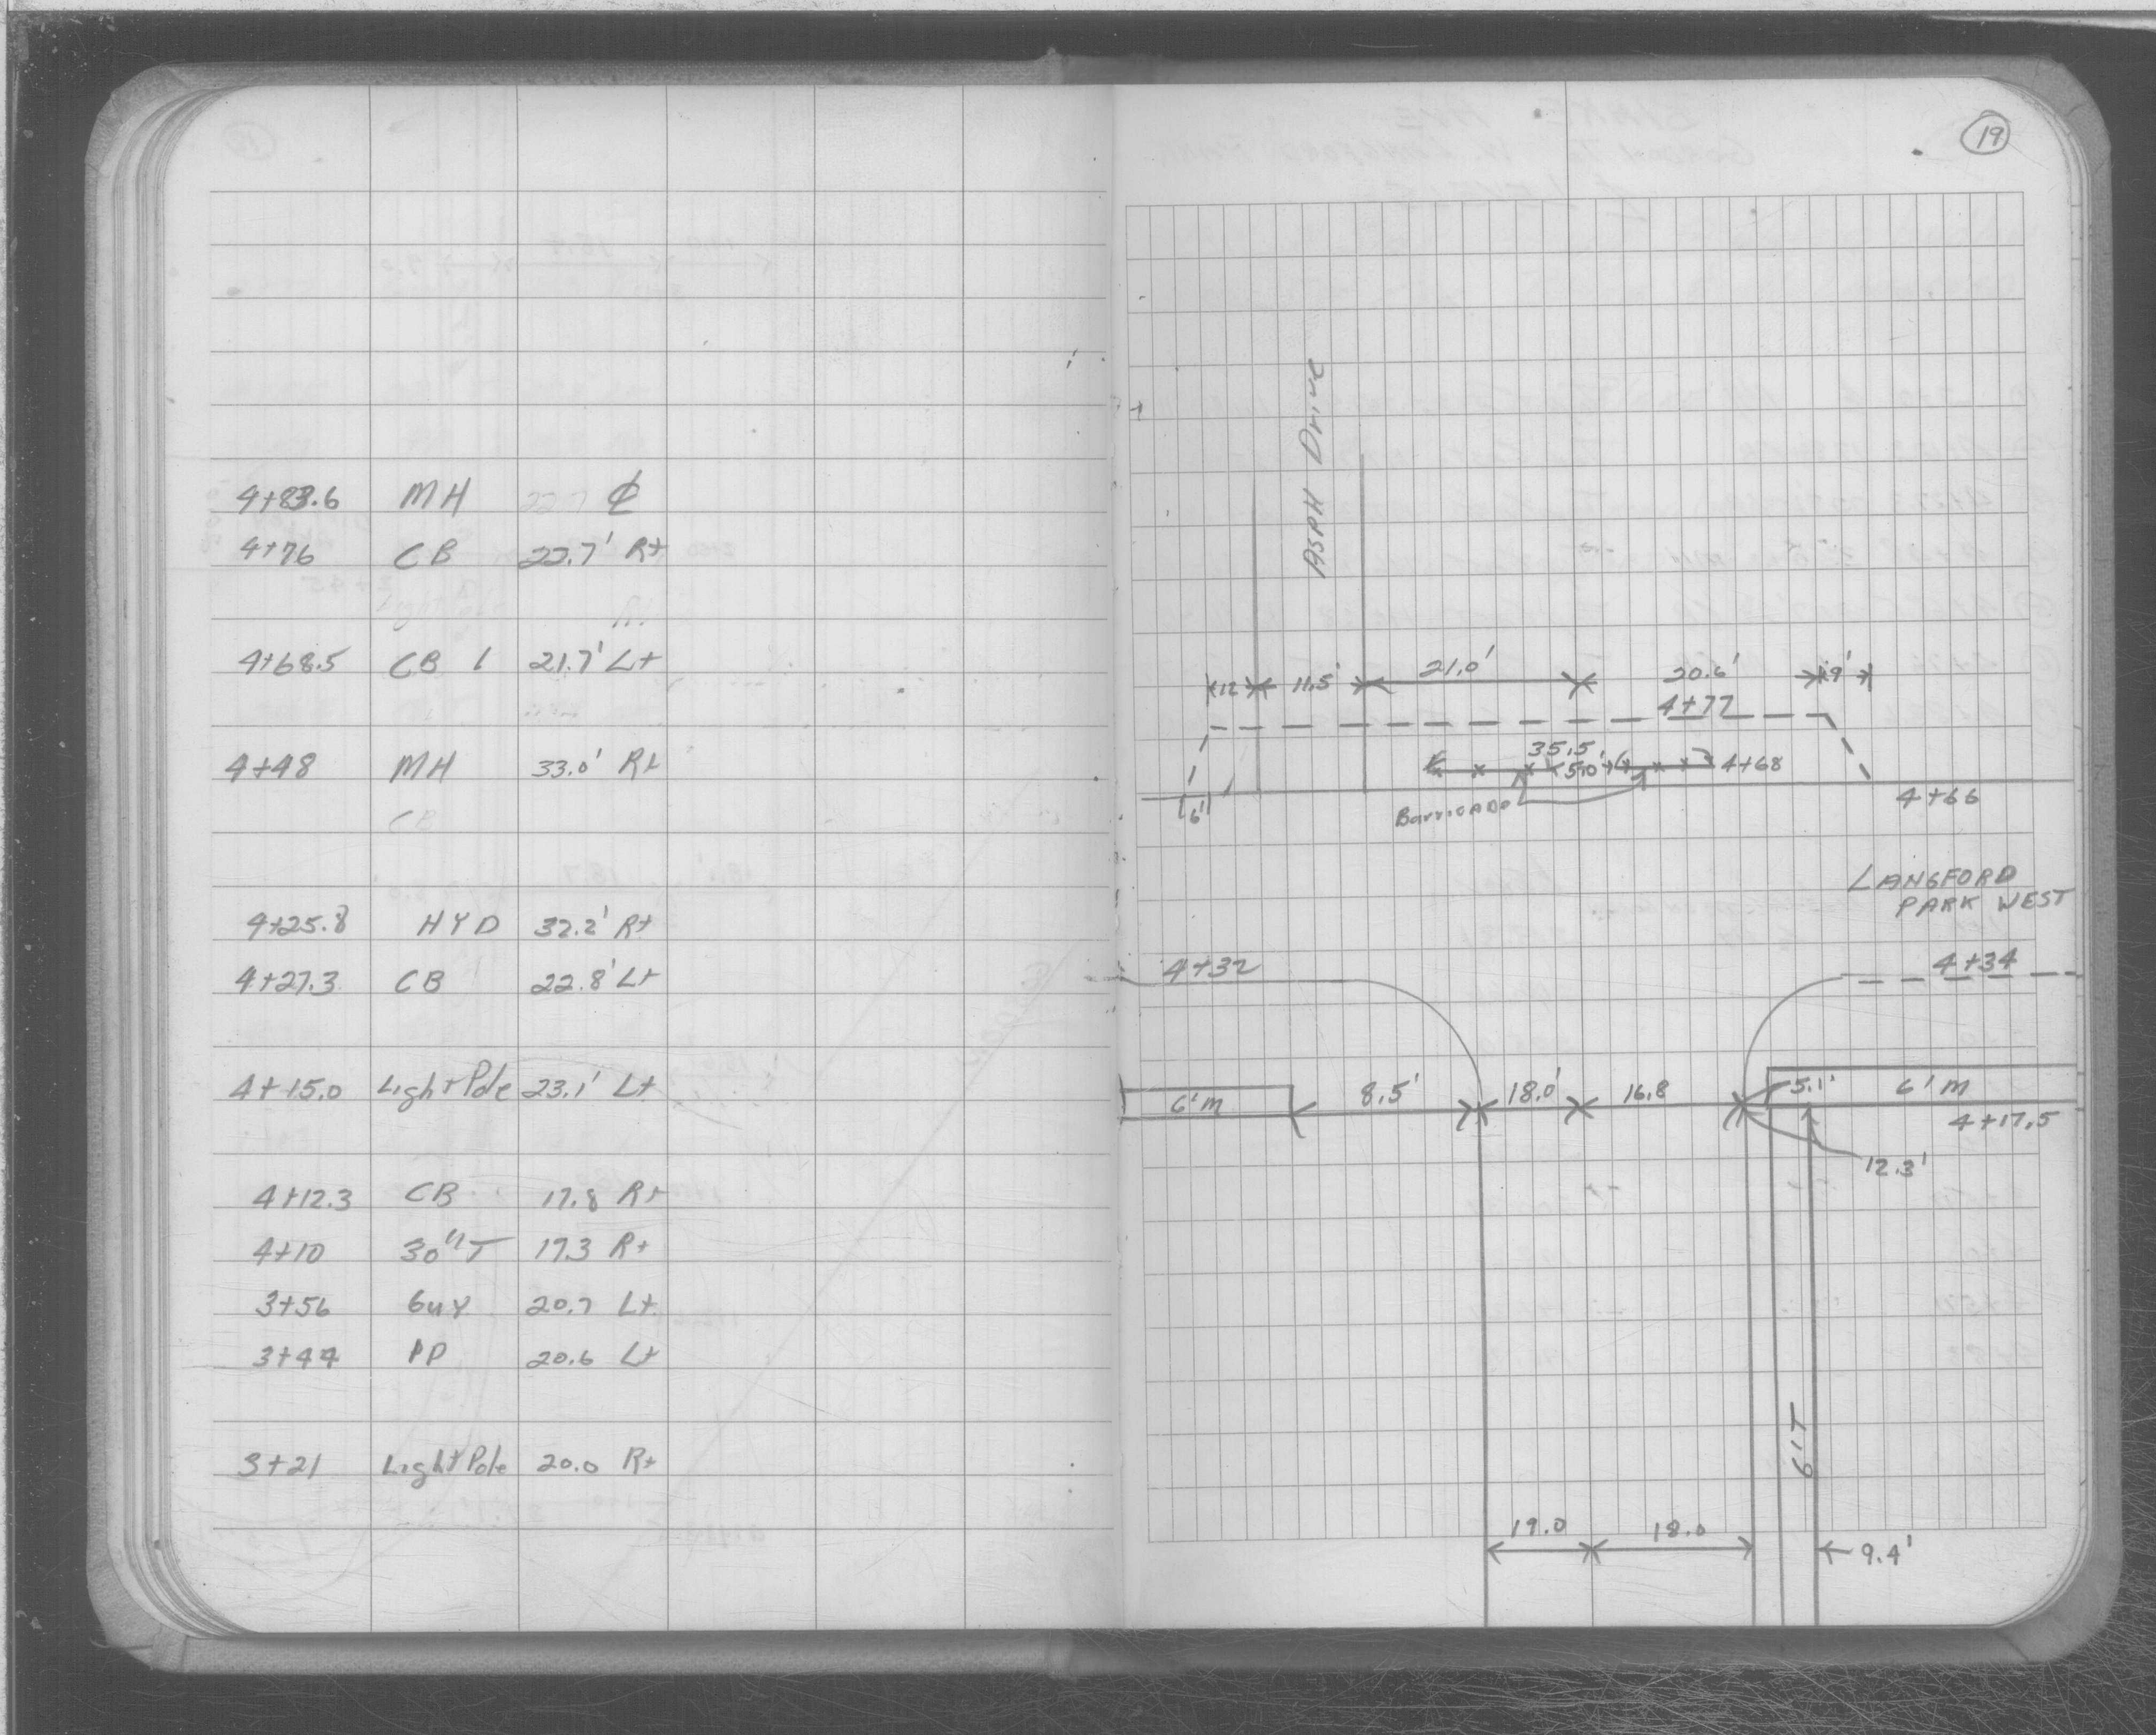 4+83.6 MH ₵
4+76 CB 22.7' Rt
4+68.5 CB 21.7' Lt
4+48 MH 33.0' Rt
CB
4+25.8 HYD 32.2' Rt
4+27.3 CB 22.8' Lt
4+15.0 Light Pole 23.1' Lt
4+12.3 CB 17.8 Rt
4+10 30"T 17.3 Rt
3+56 Guy 20.7 Lt
3+44 PP 20.6 Lt
3+21 Light Pole 20.0 Rt
19
ASPH Drive
12 11.5' 21.0' 20.6' 9'
4+77
35.5
5.0' 4+68
6' Barricade 4+66
LANGFORD
PARK WEST
4+32 4+34
6'M 8.5' 18.0' 16.8 5.1' 6'M
4+17.5
12.3'
6'T
19.0 18.0 9.4'